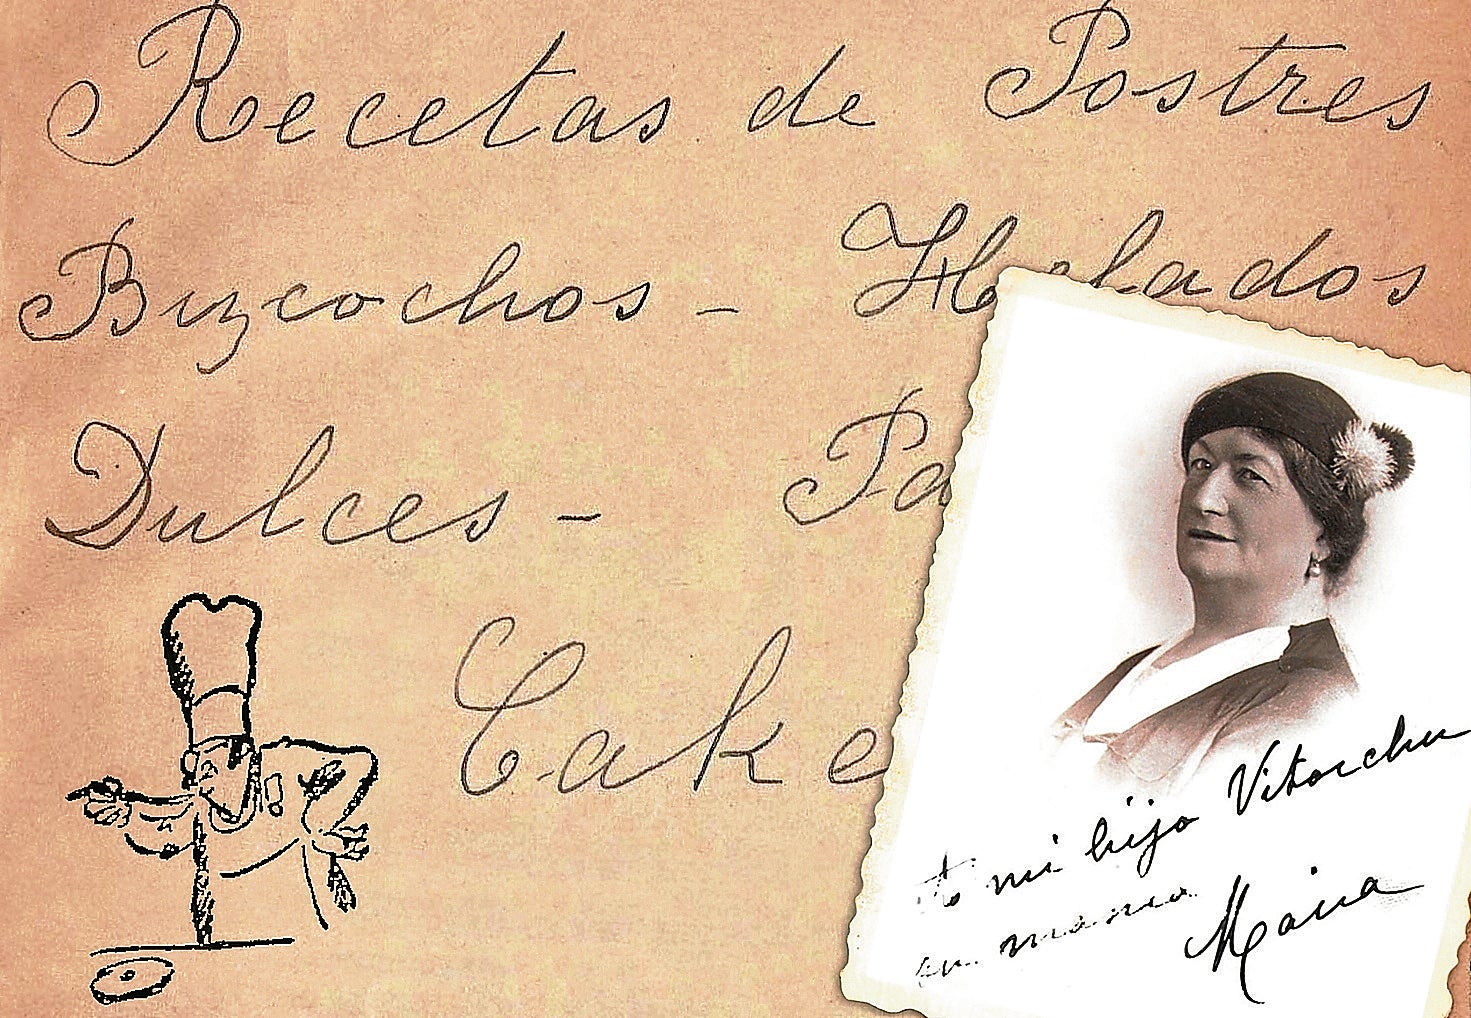 Recetas de Postres
Bizcochos - Helados
Dulces - Pa
Cake
A mi hijo Vitorchu
su mama
Maria